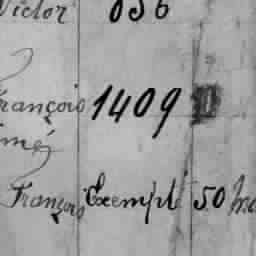 Victor 056
François 1409
imé
François Exempté 50